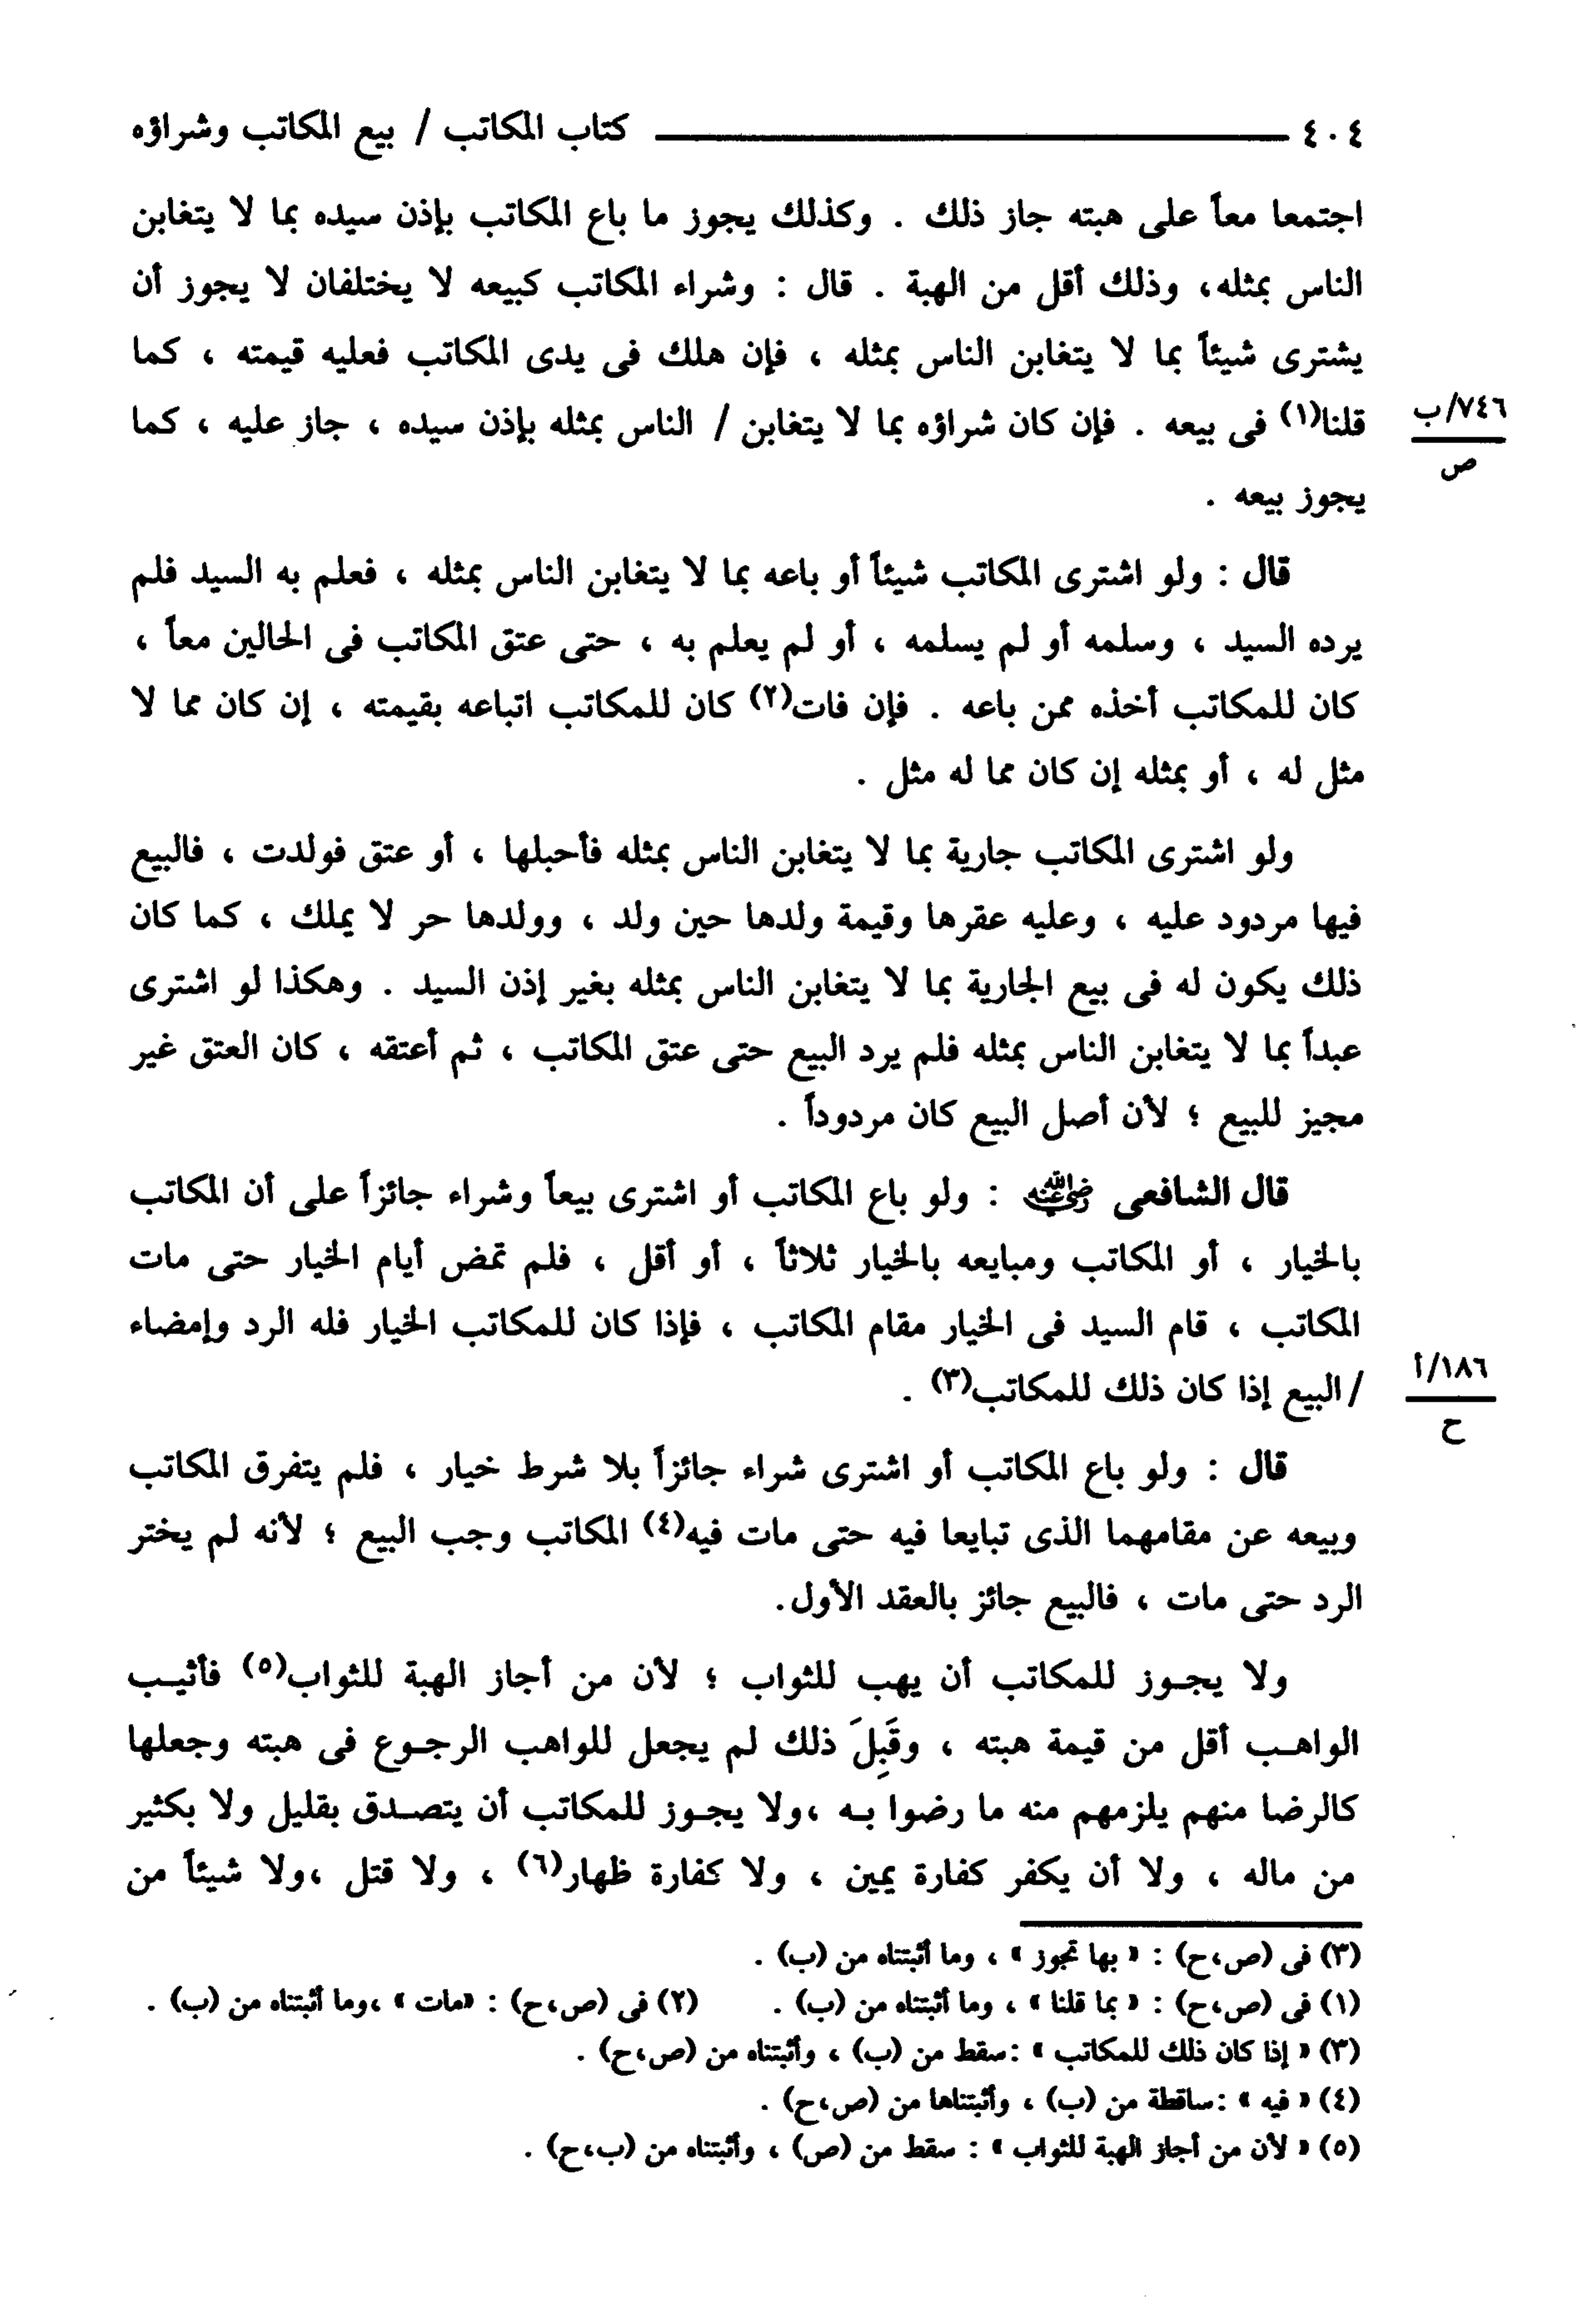 ٤٠٤ كتاب المكاتب / بيع المكاتب وشراؤه
اجتمعا معاً على هبته جاز ذلك . وكذلك يجوز ما باع المكاتب بإذن سيده بما لا يتغابن
الناس بمثله، وذلك أقل من الهبة . قال : وشراء المكاتب كبيعه لا يختلفان لا يجوز أن
يشترى شيئاً بما لا يتغابن الناس بمثله ، فإن هلك فى يدى المكاتب فعليه قيمته ، كما
قلنا(١) فى بيعه . فإن كان شراؤه بما لا يتغابن / الناس بمثله بإذن سيده ، جاز عليه ، كما
٧٤٦/ب
ص
يجوز بيعه .
قال : ولو اشترى المكاتب شيئاً أو باعه بما لا يتغابن الناس بمثله ، فعلم به السيد فلم
يرده السيد ، وسلمه أو لم يسلمه ، أو لم يعلم به ، حتى عتق المكاتب فى الحالين معاً ،
كان للمكاتب أخذه ممن باعه . فإن فات(٢) كان للمكاتب اتباعه بقيمته ، إن كان مما لا
مثل له ، أو بمثله إن كان مما له مثل .
ولو اشترى المكاتب جارية بما لا يتغابن الناس بمثله فأحبلها ، أو عتق فولدت ، فالبيع
فيها مردود عليه ، وعليه عقرها وقيمة ولدها حين ولد ، وولدها حر لا يملك ، كما كان
ذلك يكون له فى بيع الجارية بما لا يتغابن الناس بمثله بغير إذن السيد . وهكذا لو اشترى
عبداً بما لا يتغابن الناس بمثله فلم يرد البيع حتى عتق المكاتب ، ثم أعتقه ، كان العتق غير
مجيز للبيع ؛ لأن أصل البيع كان مردوداً .
قال الشافعى رضي الله عنه : ولو باع المكاتب أو اشترى بيعاً وشراء جائزاً على أن المكاتب
بالخيار ، أو المكاتب ومبايعه بالخيار ثلاثاً ، أو أقل ، فلم تمض أيام الخيار حتى مات
المكاتب ، قام السيد فى الخيار مقام المكاتب ، فإذا كان للمكاتب الخيار فله الرد وإمضاء
/ البيع إذا كان ذلك للمكاتب(٣) .
١٨٦/أ
ح
قال : ولو باع المكاتب أو اشترى شراء جائزاً بلا شرط خيار ، فلم يتفرق المكاتب
وبيعه عن مقامهما الذى تبايعا فيه حتى مات فيه(٤) المكاتب وجب البيع ؛ لأنه لم يختر
الرد حتى مات ، فالبيع جائز بالعقد الأول.
ولا يجوز للمكاتب أن يهب للثواب ؛ لأن من أجاز الهبة للثواب(٥) فأثيب
الواهب أقل من قيمة هبته ، وقَبِلَ ذلك لم يجعل للواهب الرجوع فى هبته وجعلها
كالرضا منهم يلزمهم منه ما رضوا به ،ولا يجوز للمكاتب أن يتصدق بقليل ولا بكثير
من ماله ، ولا أن يكفر كفارة يمين ، ولا كفارة ظهار(٦) ، ولا قتل ،ولا شيئاً من
(٣) فى (ص،ح) : « بها تجوز » ، وما أثبتناه من (ب) .
(١) فى (ص،ح) : « بما قلنا » ، وما أثبتناه من (ب) . (٢) فى (ص،ح) : «مات» ،وما أثبتناه من (ب) .
(٣) « إذا كان ذلك للمكاتب » :سقط من (ب) ، وأثبتناه من (ص،ح) .
(٤) « فيه » :ساقطة من (ب) ، وأثبتناها من (ص،ح) .
(٥) « لأن من أجاز الهبة للثواب» : سقط من (ص) ، وأثبتناه من (ب،ح) .